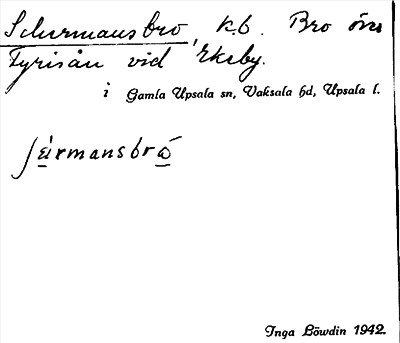 Schurmans bro, k.b. Bro över
Fyrisån vid Ekeby.
i Gamla Upsala sn, Vaksala hd, Upsala l.
ʃärmansbrό
Inga Löwdin 1942.